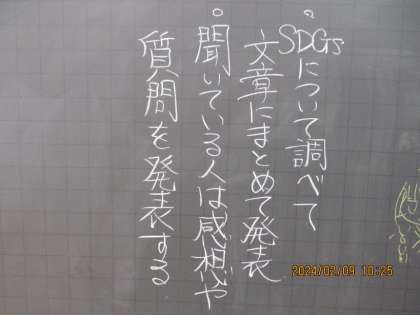 。SDGsについて調べて
文章にまとめて発表
。聞いている人は感想や
質問を発表する
2024/02/09 10:25